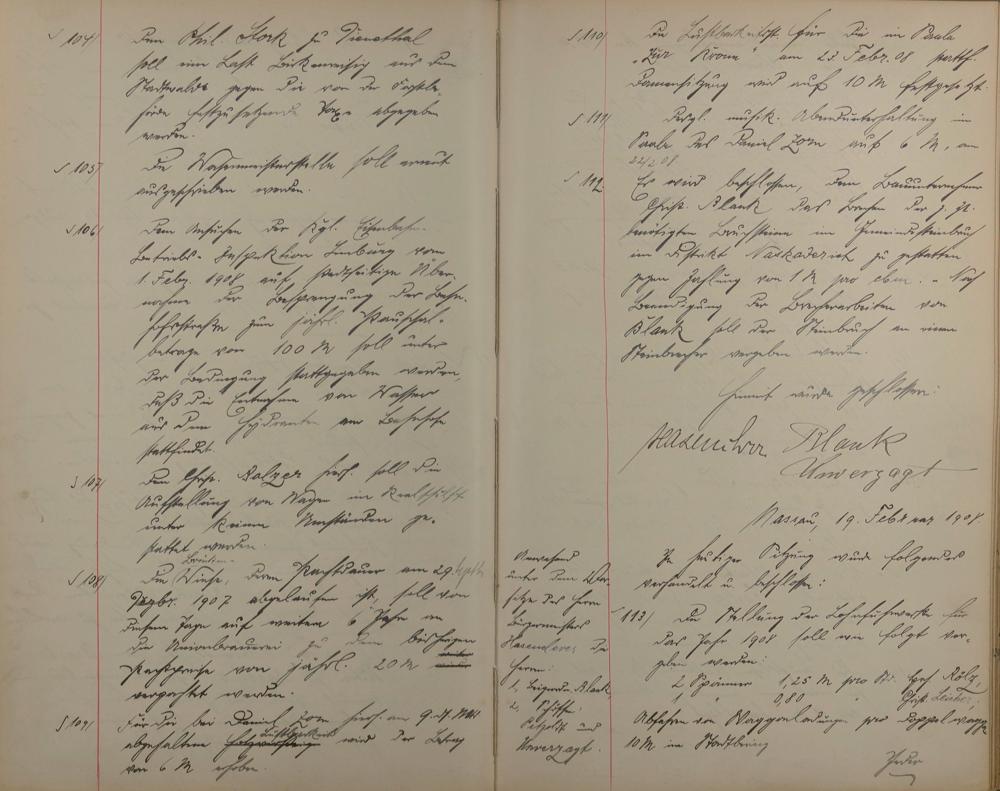 § 104
Dem Phil. Stork zu Dienethal
soll eine Last Birkenreisig aus dem
Stadtwalde gegen die von der Forstbe-
hörde festzusetzende Taxe abgegeben
werden.
§ 105
Die Wasenmeisterstelle soll erneut
ausgeschrieben werden.
§ 106
Dem Ansuchen der Kgl. Eisenbahn-
Betriebs-Inspektion Limburg vom
1. Febr. 1908 auf stadtseitige Über-
nahme der Besprengung der Bahn-
hofstraße zum jährl. Pauschal-
betrage von 100 M soll unter
der Bedingung stattgegeben werden,
daß die Entnahme von Wasser
aus dem Hydranten am Bahnhofe
stattfindet.
§ 107
Dem Chrn. Balzer hier soll die
Aufstellung von Wagen im
unter keinen Umständen ge-
stattet werden.
§ 108
Die Wiese, deren Pachtdauer am 29.
Dezbr. 1907 abgelaufen ist, soll von
diesem Tage auf weitere 6 Jahre an
die Unionbrauerei zu dem bisherigen
Pachtpreise von jährl. 20 M
verpachtet werden.
§ 109
Für die bei Daniel Zorn hier am 9. d. Mts
abgehaltene Lustbarkeit wird der Betrag
von 6 M erhoben.
§ 110
Die Lustbarkeitsst. für die im Saale
"Zur Krone" am 23 Febr. 08 stattf.
Damensitzung wird auf 10 M festgesetzt.
§ 111
Desgl. musik. Abendunterhaltung im
Saale des Daniel Zorn auf 6 M, am
22/2 08
§ 112
Es wird beschlossen, dem Bauunternehmer
Christ. Blank das Brechen der z. Zt.
benötigten Bruchsteine im Gemeindesteinbruch
im Distrikt zu gestatten
gegen Zahlung von 1 M pro cbm. - Nach
Beendigung der Brecherarbeiten von
Blank soll der Steinbruch an einen
Steinbrecher vergeben werden.
Hiermit wurde geschlossen:
Hasenclever Blank
Unverzagt
Nassau, 19. Februar 1908.
Anwesend
unter dem Vor-
sitze des Herrn
Bürgermeisters
Hasenclever die
Herrn:
1, Beigeordn. Blank
2,
und
Unverzagt.
In heutiger Sitzung wurde folgendes
verhandelt u. beschlossen:
113/
Die Stellung der Lohnfuhrwerke für
das Jahr 1908 soll wie folgt ver-
geben werden:
2 Spänner 1,25 M pro Std.
1 " 0,80 " Christ.
Abfahren von Waggonladungen pro Doppelwagg.
10 M im Stadtbering
Jeder